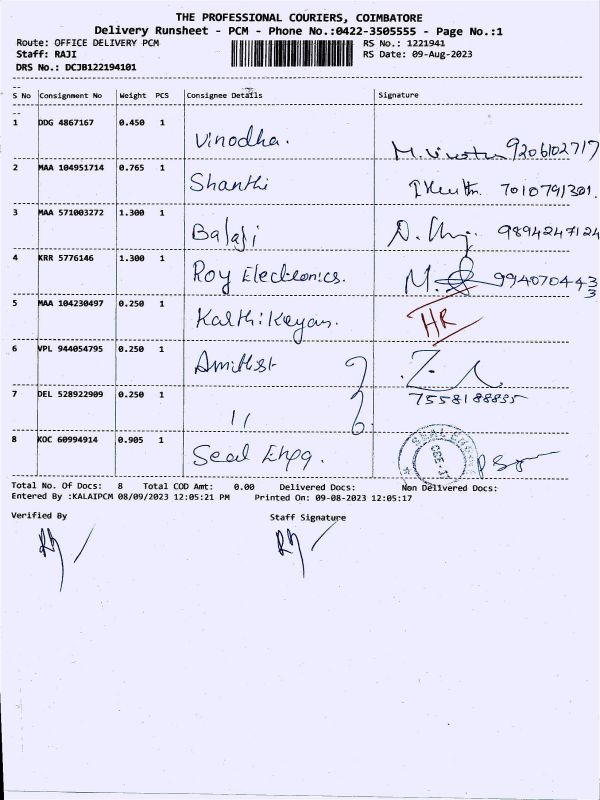 THE PROFESSIONAL COURIERS, COIMBATORE
Delivery Runsheet - PCM - Phone No.:0422-3505555 - Page No.:1
Route: OFFICE DELIVERY PCM RS No.: 1221941
Staff: RAJI RS Date: 09-Aug-2023
DRS No.: DCJB122194101
S No Consignment No Weight PCS Consignee Details Signature
1 DDG 4867167 0.450 1 Vinodha. 9206102717
2 MAA 104951714 0.765 1 Shanthi 7010791301.
3 MAA 571003272 1.300 1 Balaji 9894247124
4 KRR 5776146 1.300 1 Roy Electronics. M. 9940704433
5 MAA 104230497 0.250 1 Karthikeyan. HR
6 VPL 944054795 0.250 1
7 DEL 528922909 0.250 1 11 7558188835
8 KOC 60994914 0.905 1 Seal Engg.
Total No. Of Docs: 8 Total COD Amt: 0.00 Delivered Docs: Non Delivered Docs:
Entered By :KALAIPCM 08/09/2023 12:05:21 PM Printed On: 09-08-2023 12:05:17
Verified By Staff Signature